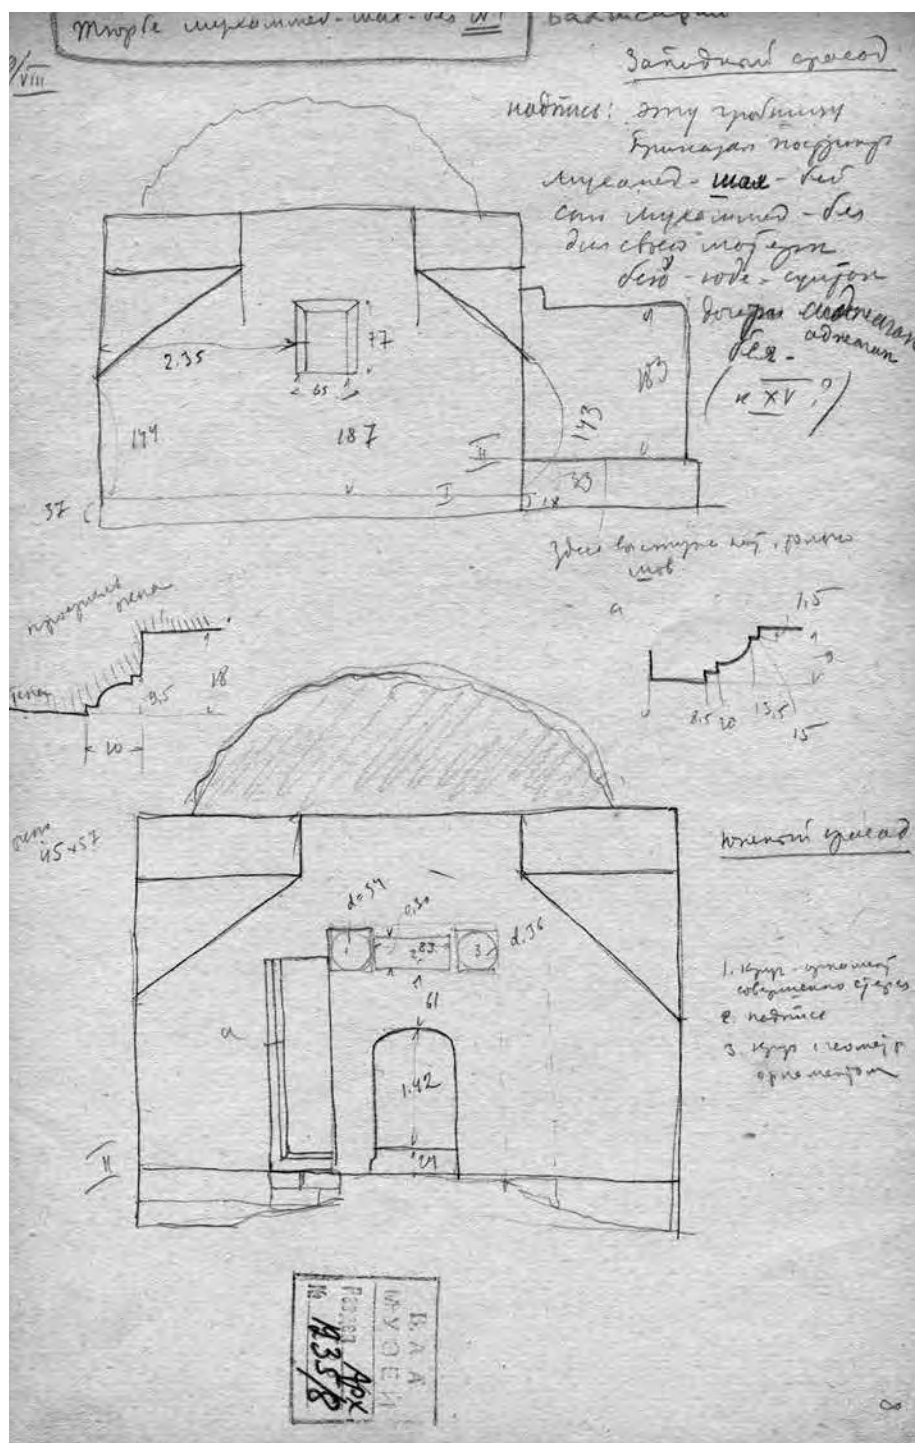 Тюрбе Мухаммед-шах-бея №1 Бахчисарай
VIII
Западный фасад
надпись: эту гробницу
приказал построить
Мухамед-шах-бей
сын Мухаммед-бея
для своей матери
бею-юде-султан
дочери
аджеган
бея-
(н XV?)
2.35
77
65
144
187
II
143
183
33
37
I
18
Здесь выступа нет, только
шов
профиль
окна
9,5
18
20
а
1,5
9
8,5
20
13,5
15
окно
45×57
Южный фасад
d=34
0,30
1
2
83
3
d.36
61
а
1.42
24
II
1. Круг - орнамент
совершенно стерт
2. надпись
3. Круг с геометр
орнаментом
В.А.А
МУЗЕЙ
Разряд Арх
№ 1235/8
8